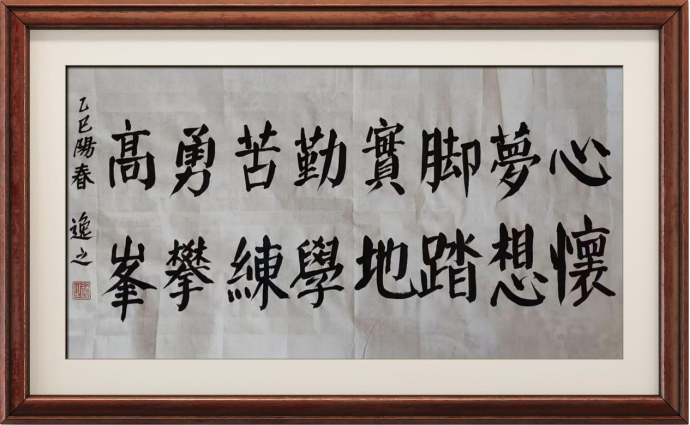 心懷
夢想
脚踏
實地
勤學
苦練
勇攀
高峯
乙巳陽春 逸之